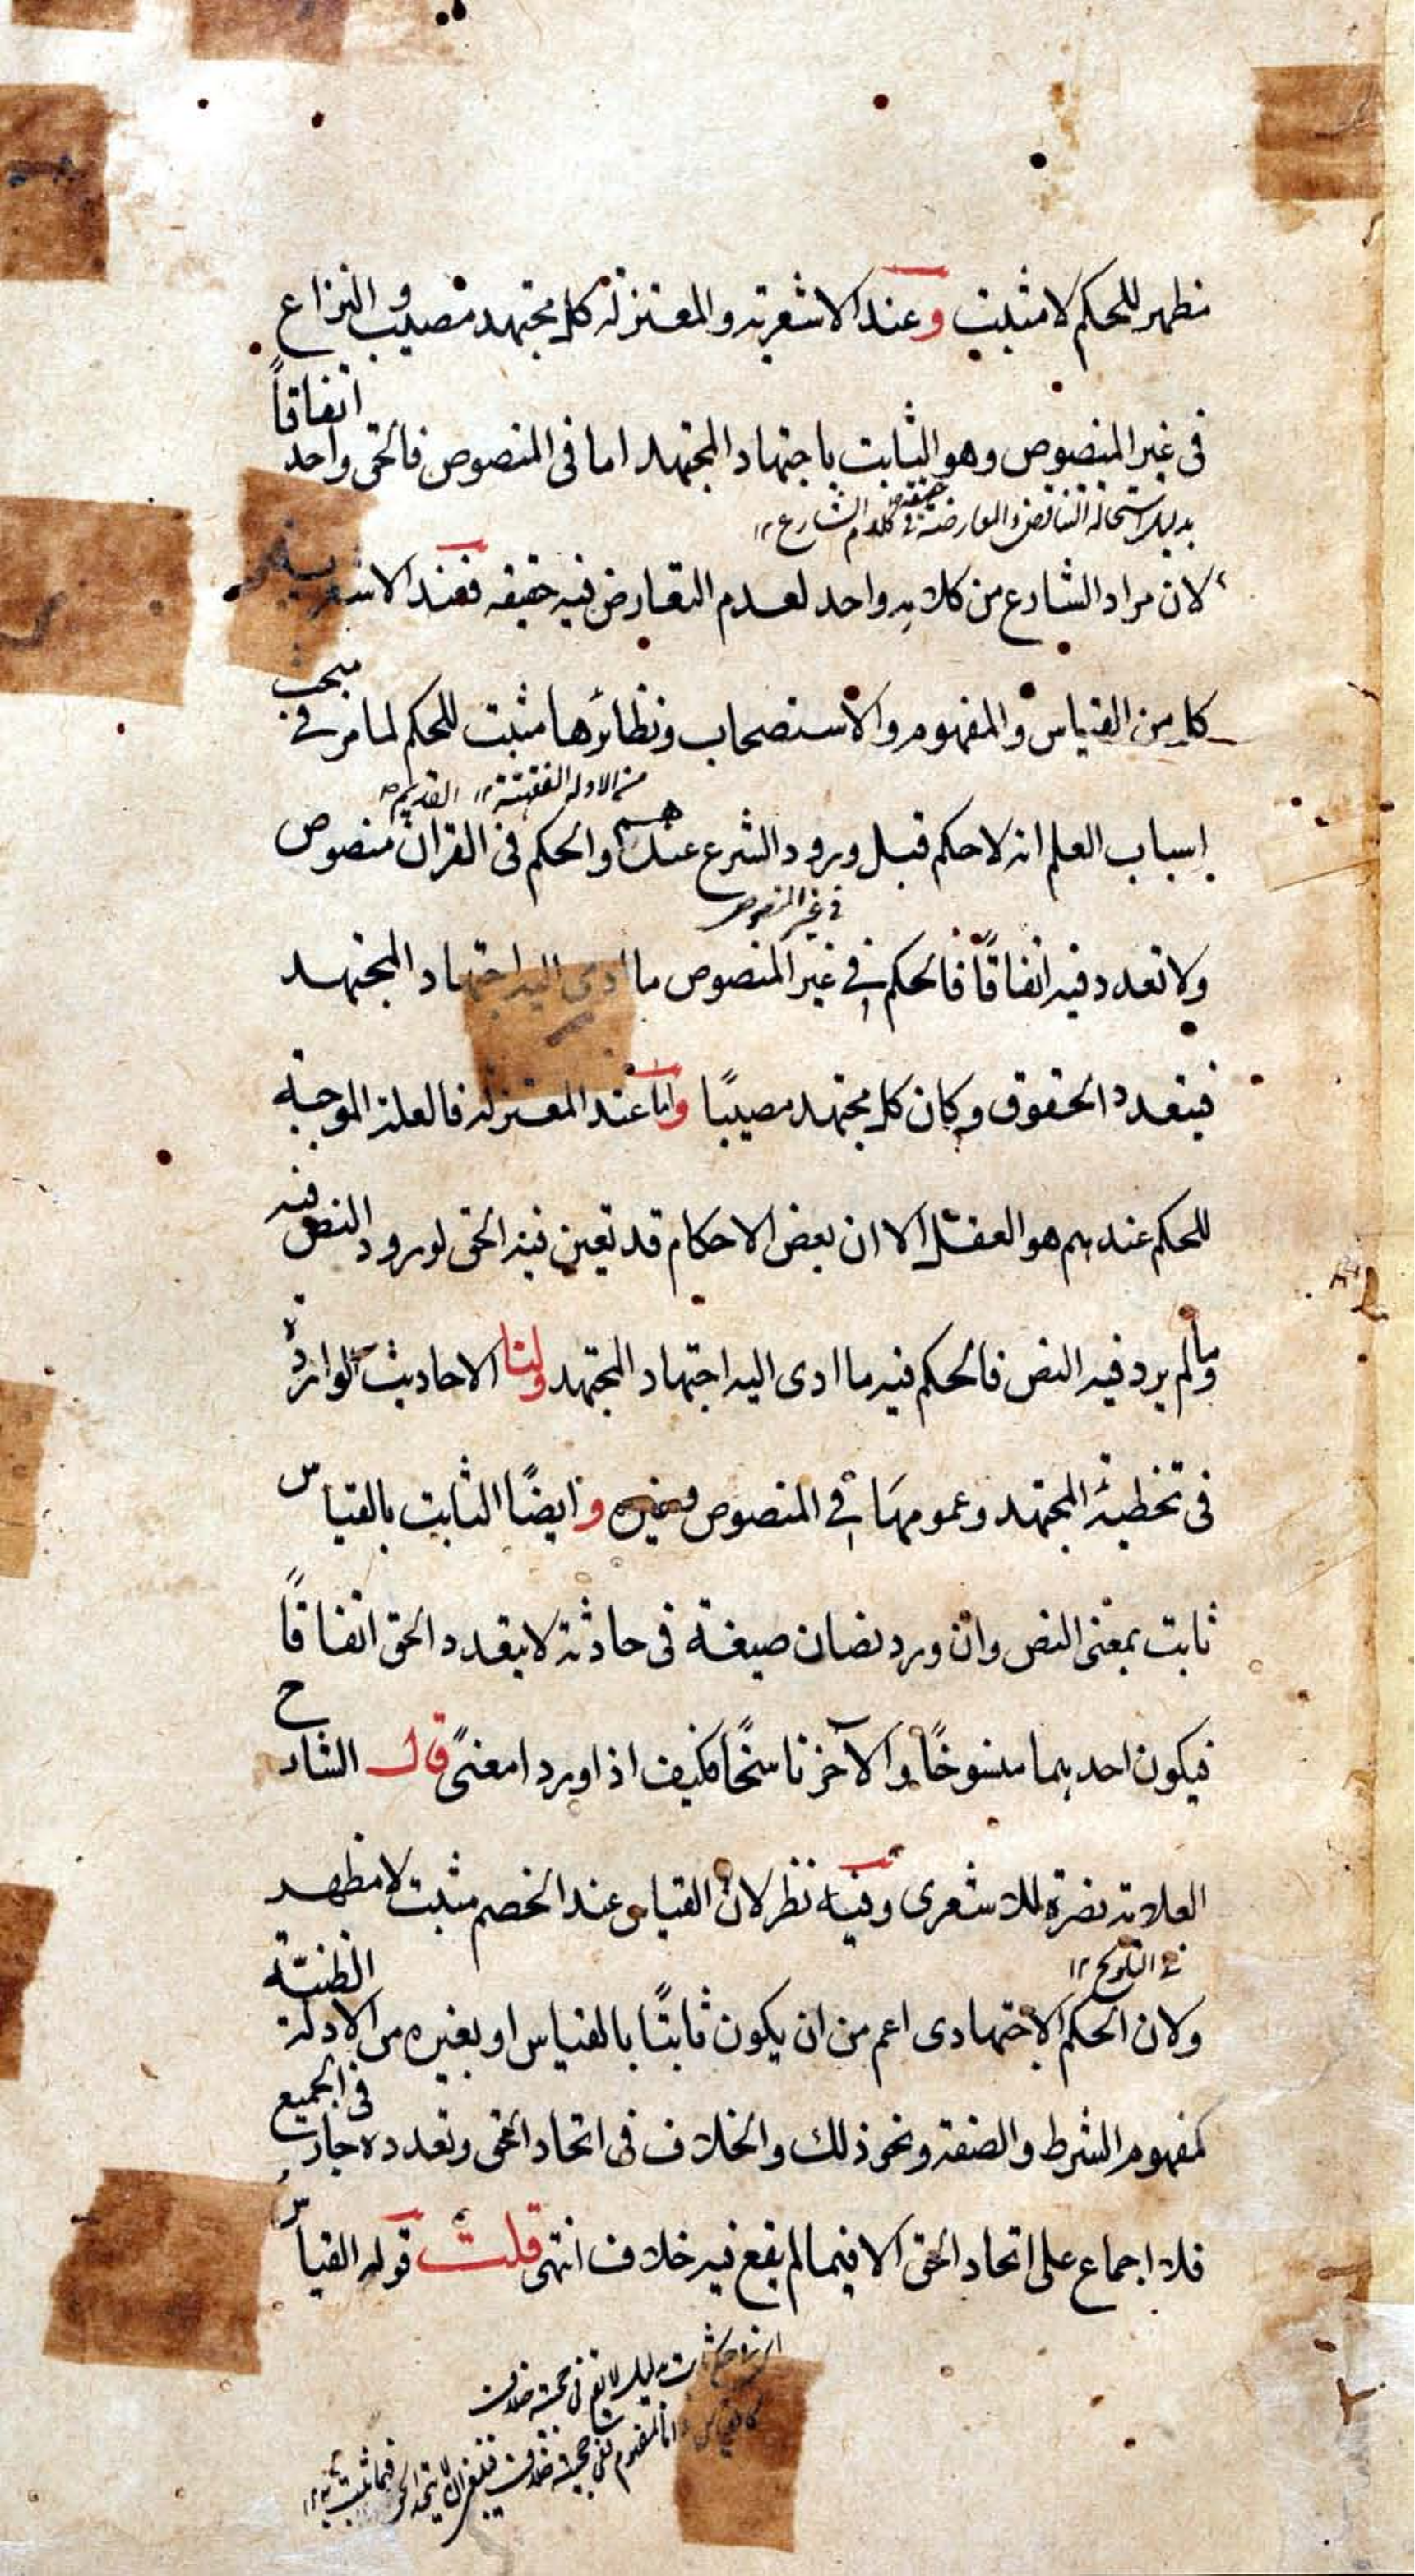 مظهر للحكم لا مثبت وعند الاشعرية والمعتزلة كل مجتهد مصيب والنزاع
فى غير المنصوص وهو الثابت باجتهاد المجتهد اما فى المنصوص فالحق واحد اتفاقاً
بدليل استحالة التناقض والمعارضة حقيقة فى كلام الشارع ١٢
لان مراد الشارع من كلامه واحد لعدم التعارض فيه حقيقه فعند الاشعرية
كل من القياس والمفهوم والاستصحاب ونظائرها مثبت للحكم لما مر فى مبحث
من الادلة الفقهية ١٢ القديم
اسباب العلم انه لا حكم قبل ورود الشرع عندهم والحكم فى القران منصوص
فى غير المنصوص
ولا تعدد فيه اتفاقاً فالحكم فى غير المنصوص ما ادى اليه اجتهاد المجتهد
فيتعدد الحقوق وكان كل مجتهد مصيبًا واما عند المعتزلة فالعلة الموجبة
للحكم عندهم هو العقل الا ان بعض الاحكام قد تعين فيه الحق لورود النص فيه
وما لم يرد فيه النص فالحكم فيه ما ادى اليه اجتهاد المجتهد ولنا الاحاديث الواردة
فى تخطية المجتهد وعمومها فى المنصوص وغيره وايضًا الثابت بالقياس
ثابت بمعنى النص وان ورد نصان صيغة فى حادثة لا يتعدد الحق اتفاقاً
فيكون احدهما منسوخًا والآخر ناسخًا فكيف اذا ورد امعنىً قال الشارح
العلامة نصرة للاشعرى وفيه نظر لان القياس عند الخصم مثبت لا مظهر
فى التلويح ١٢
ولان الحكم الاجتهادى اعم من ان يكون ثابتًا بالقياس او بغيره من الادلة الظنية
كمفهوم الشرط والصفة ونحو ذلك والخلاف فى اتحاد الحق وتعدده جار فى الجميع
فلا اجماع على اتحاد الحق الا فيما لم يقع فيه خلاف انتهى قلت قوله القياس
بدليل لا يقع فى حجيته خلاف
اما المفهوم ففى حجيته خلاف فيما ثبت به ١٢